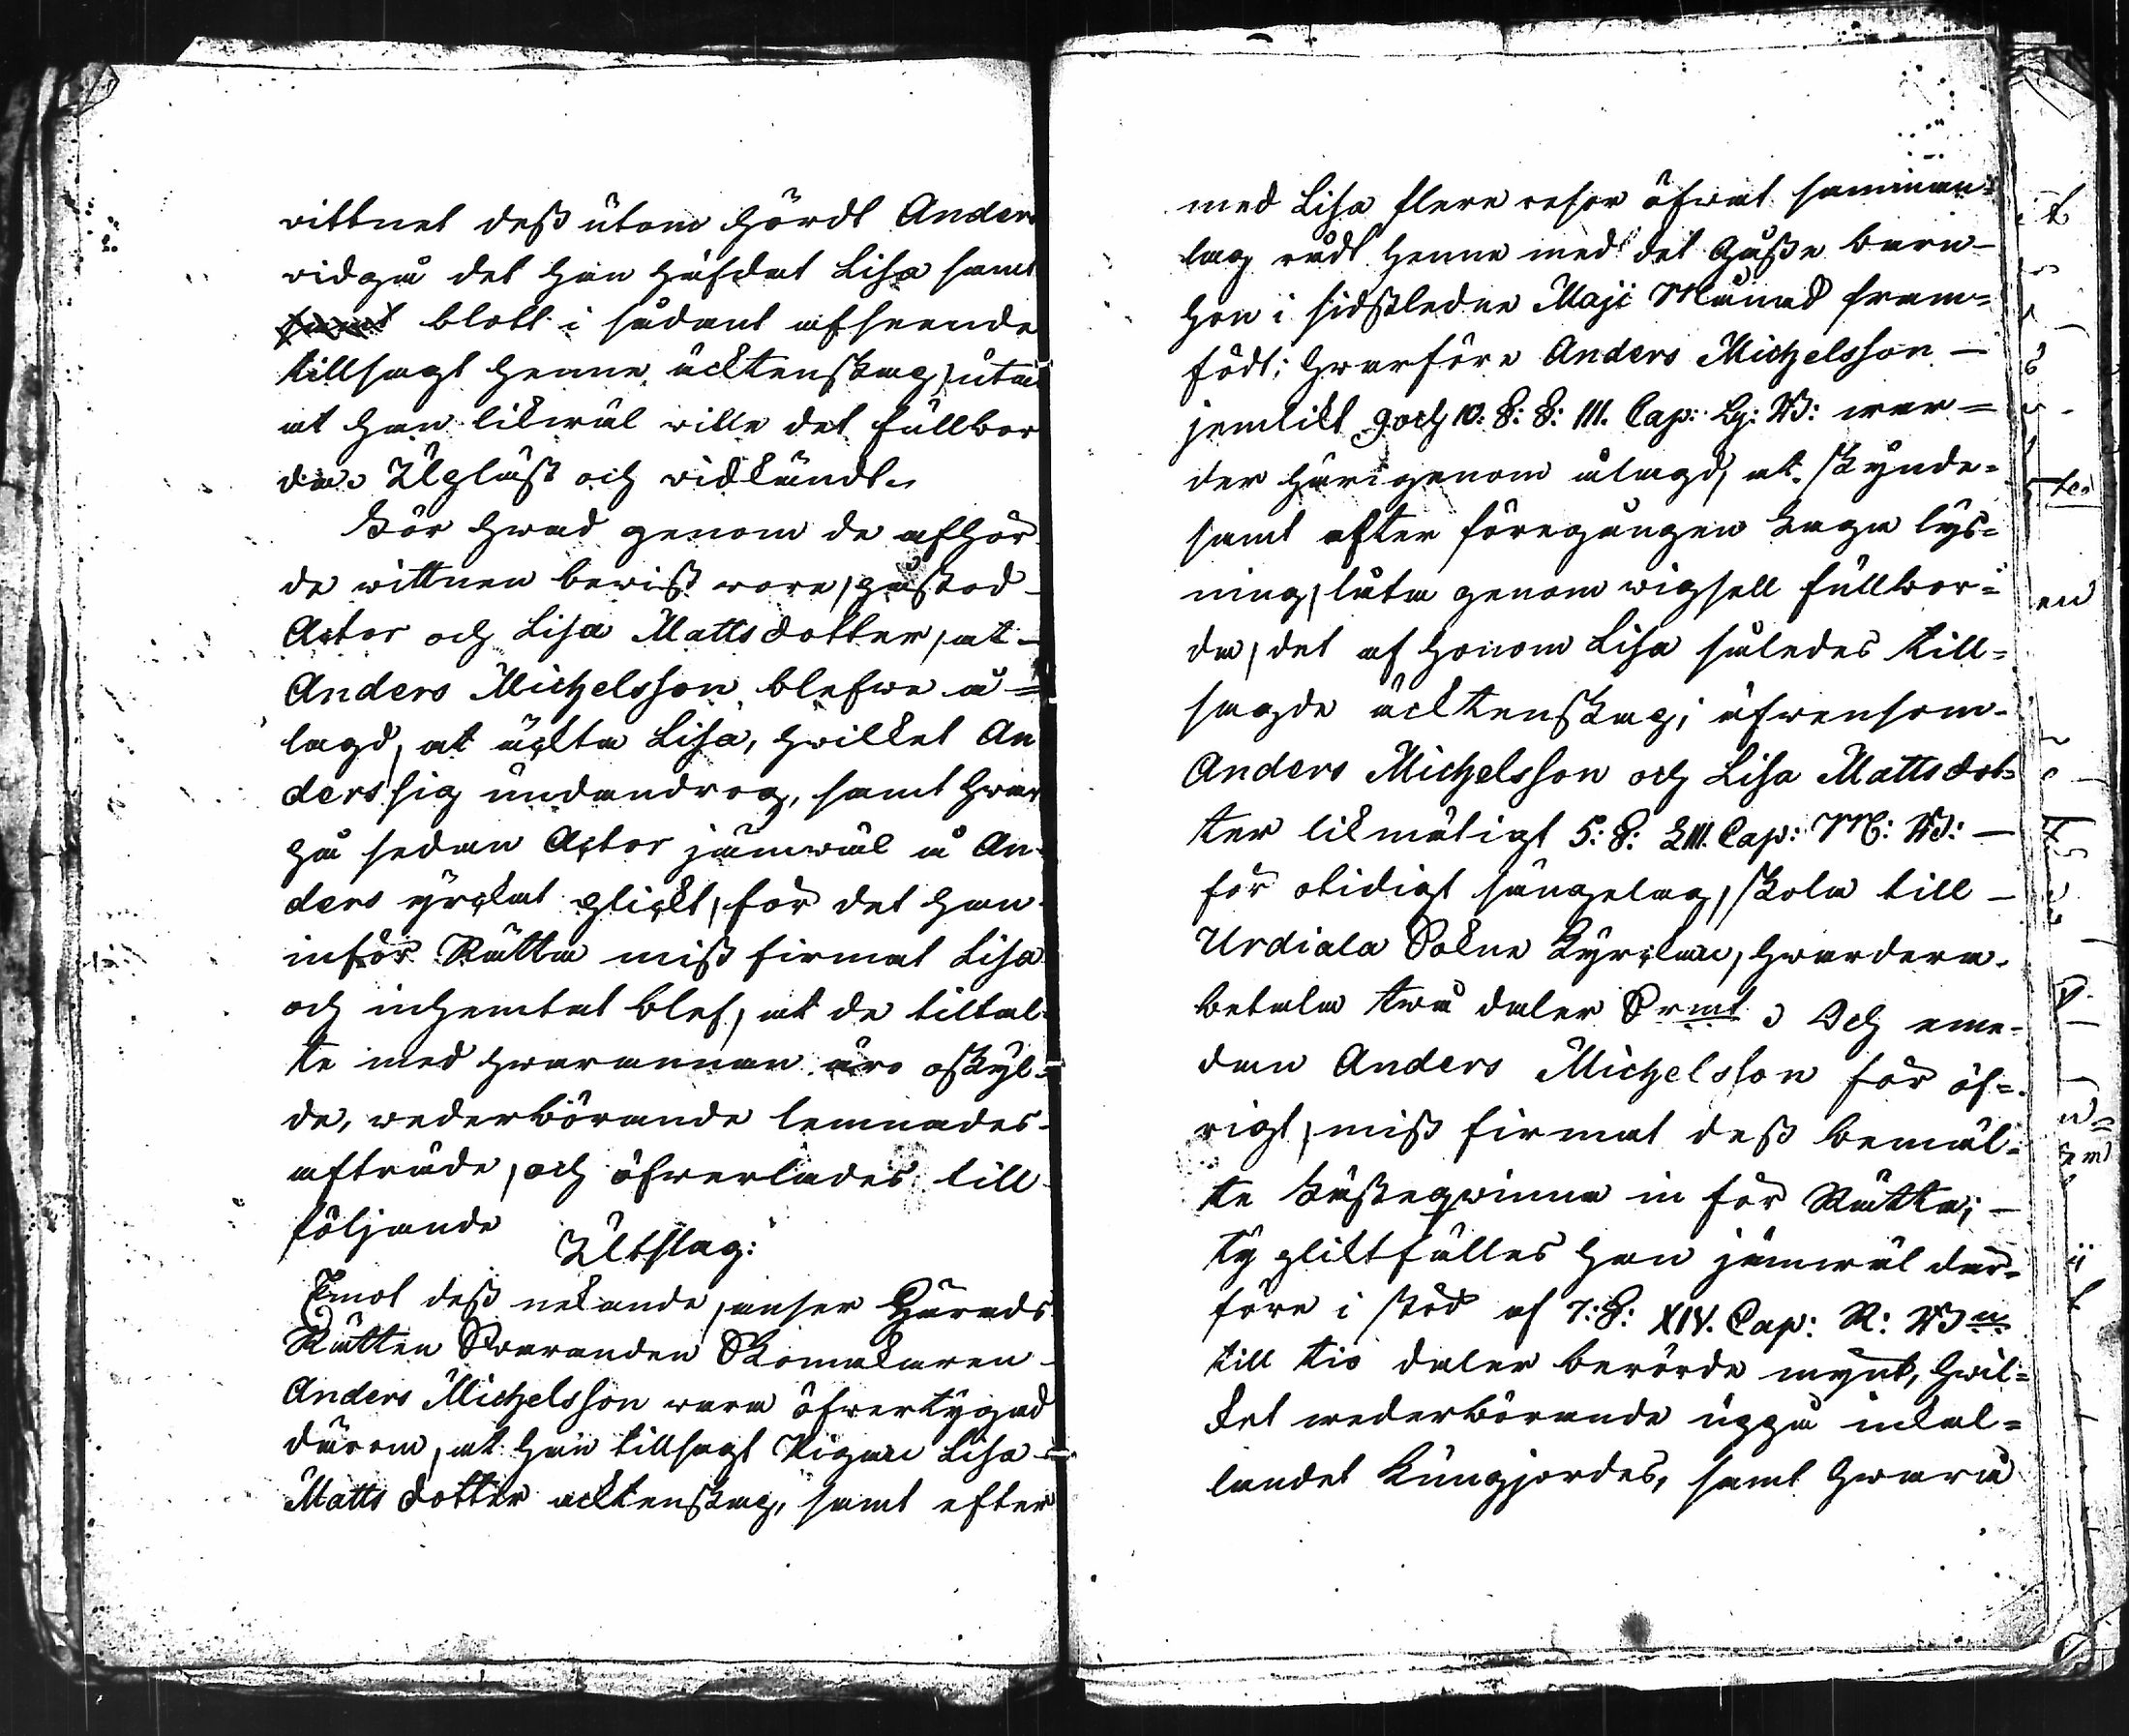 vittnet dess utom hördt Anders
vidgå det han häfdat Lisa samt
blott i sådant afseende
tillsagt henne äcktenskap, utan
at han likwäl wille det fullbor
da. Upläst och vidkändt.
För hwad genom de afhör
de vittnen bewist wore, påstod
Actor och Lisa Mattsdotter, at
Anders Michelsson blefwe å=
lagd, at äckta Lisa, hwilket An
ders sig undandrog, samt hwar
på sedan Actor jämwäl å An
ders yrckat plickt, för det han
inför Rätta missfirmat Lisa
och inhemtat blef, at de tiltal
te med hwarannan äro oskyl=
de, wederbörande lemnades
afträde, och öfwerlades till
följande
Utslag:
Emot dess nekande, anser Härads
Rätten Swaranden Skomakaren
Anders Michelsson wara öfwertygad
därom, at han tillsagt Pigan Lisa
Matts dotter äcktenskap, samt efter
med Lisa flere resor öfwat samman=
lag rådt henne med det Gosse barn
hon i sidstledne Maji Månad fram=
födt; hwarföre Anders Michelsson —
jemlikt 9 och 10: §: §: III. Cap: Gg: B: war=
der härigenom ålagd, at skynde=
samt efter föregången Laga lys=
ning, låta genom wigsell fullbor=
da, det af honom Lisa således till=
sagde äcktenskap; äfwensom
Anders Michelsson och Lisa Mattsdot=
ter likmätigt 5: §: LIII. Cap: M: B: —
för otidigt sängelag, skola till —
Urdiala Sokne Kyrckan, hwardera
betala twå daler Srmt. Och eme=
dan Anders Michelsson för öf=
rigt, missfirmat dess bemäl=
te Fästeqwinna in för Rätta; —
ty pliktfälles han jämwäl där=
före i stöd af 7: §: XIV. Cap: R: Bn
till tio daler berörde mynt, hwil=
ket wederbörande uppå inkal=
landet kungjordes, samt hwarå